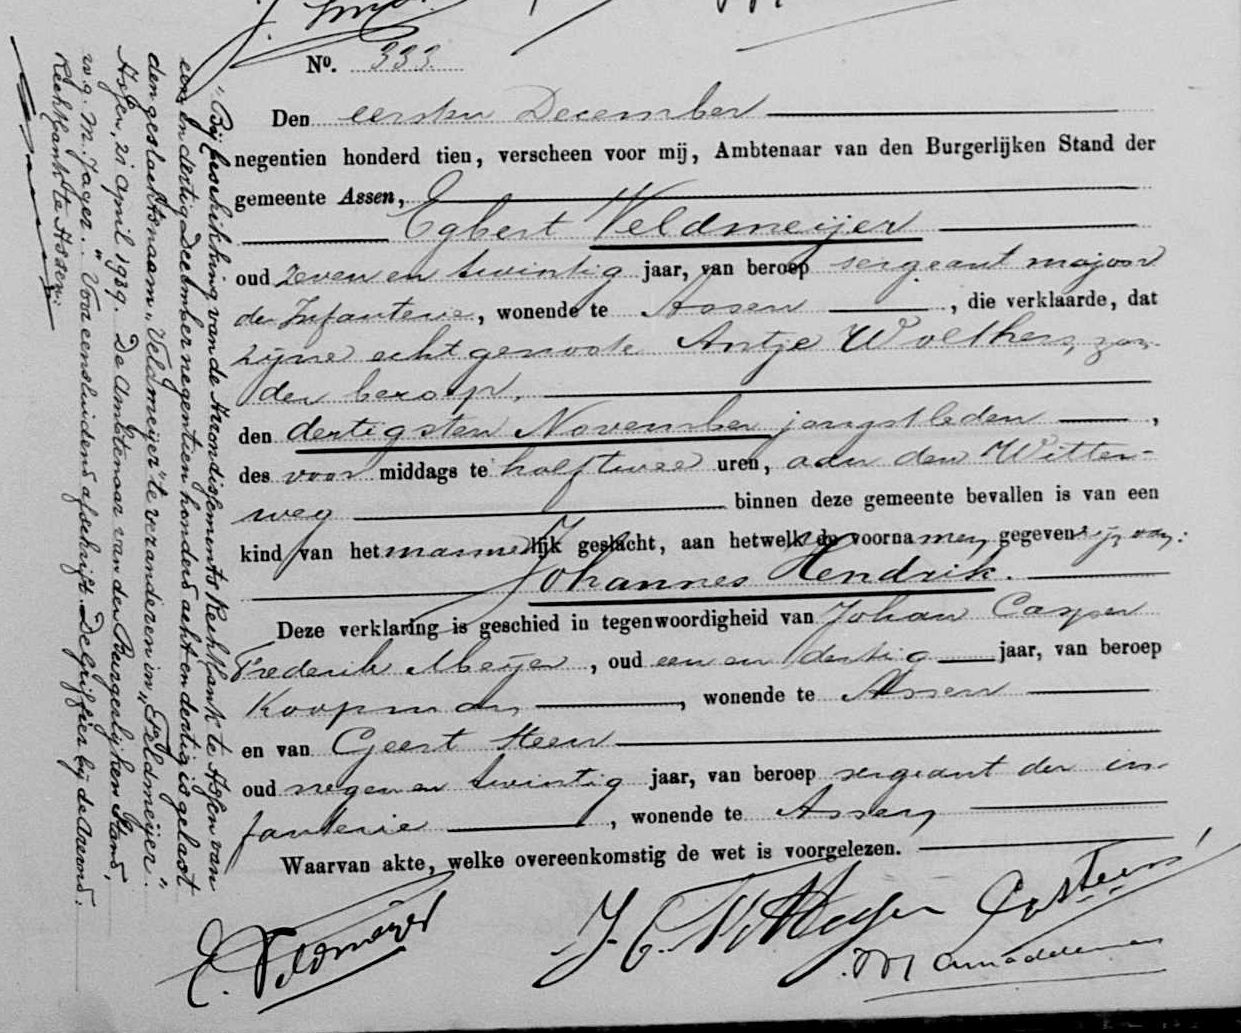 No. 333.
Den eersten December
negentien honderd tien, verscheen voor mij, Ambtenaar van den Burgerlijken Stand der
gemeente Assen,
Egbert Veldmeijer
oud zeven en twintig jaar, van beroep sergeant majoor
der Infanterie, wonende te Assen, die verklaarde, dat
zijne echtgenoote Antje Wolthers, zon-
der beroep,
den dertigsten November jongstleden,
des voor middags te half twee uren, aan den Witter-
weg binnen deze gemeente bevallen is van een
kind van het mannelijk geslacht, aan hetwelk de voornamen gegeven zijn van:
Johannes Hendrik.
Deze verklaring is geschied in tegenwoordigheid van Johan Casper
Frederik Meijer, oud een en dertig jaar, van beroep
Koopman, wonende te Assen
en van Geert Steen
oud negen en twintig jaar, van beroep sergeant der in-
fanterie, wonende te Assen,
Waarvan akte, welke overeenkomstig de wet is voorgelezen.
E. Veldmeijer
J. C. F. Meijer
G. Steen
"Bij beschikking van de Arrondissements Rechtbank te Assen van
een en dertig December negentienhonderd acht en dertig is gelast
den geslachtsnaam "Veldmeijer" te veranderen in "Feldmeijer".
Assen, 21 April 1939. De Ambtenaar van den Burgerlijken Stand,
w.g. M. Jager." Voor eensluidend afschrift. De Griffier bij de Arrond.
Rechtbank te Assen: